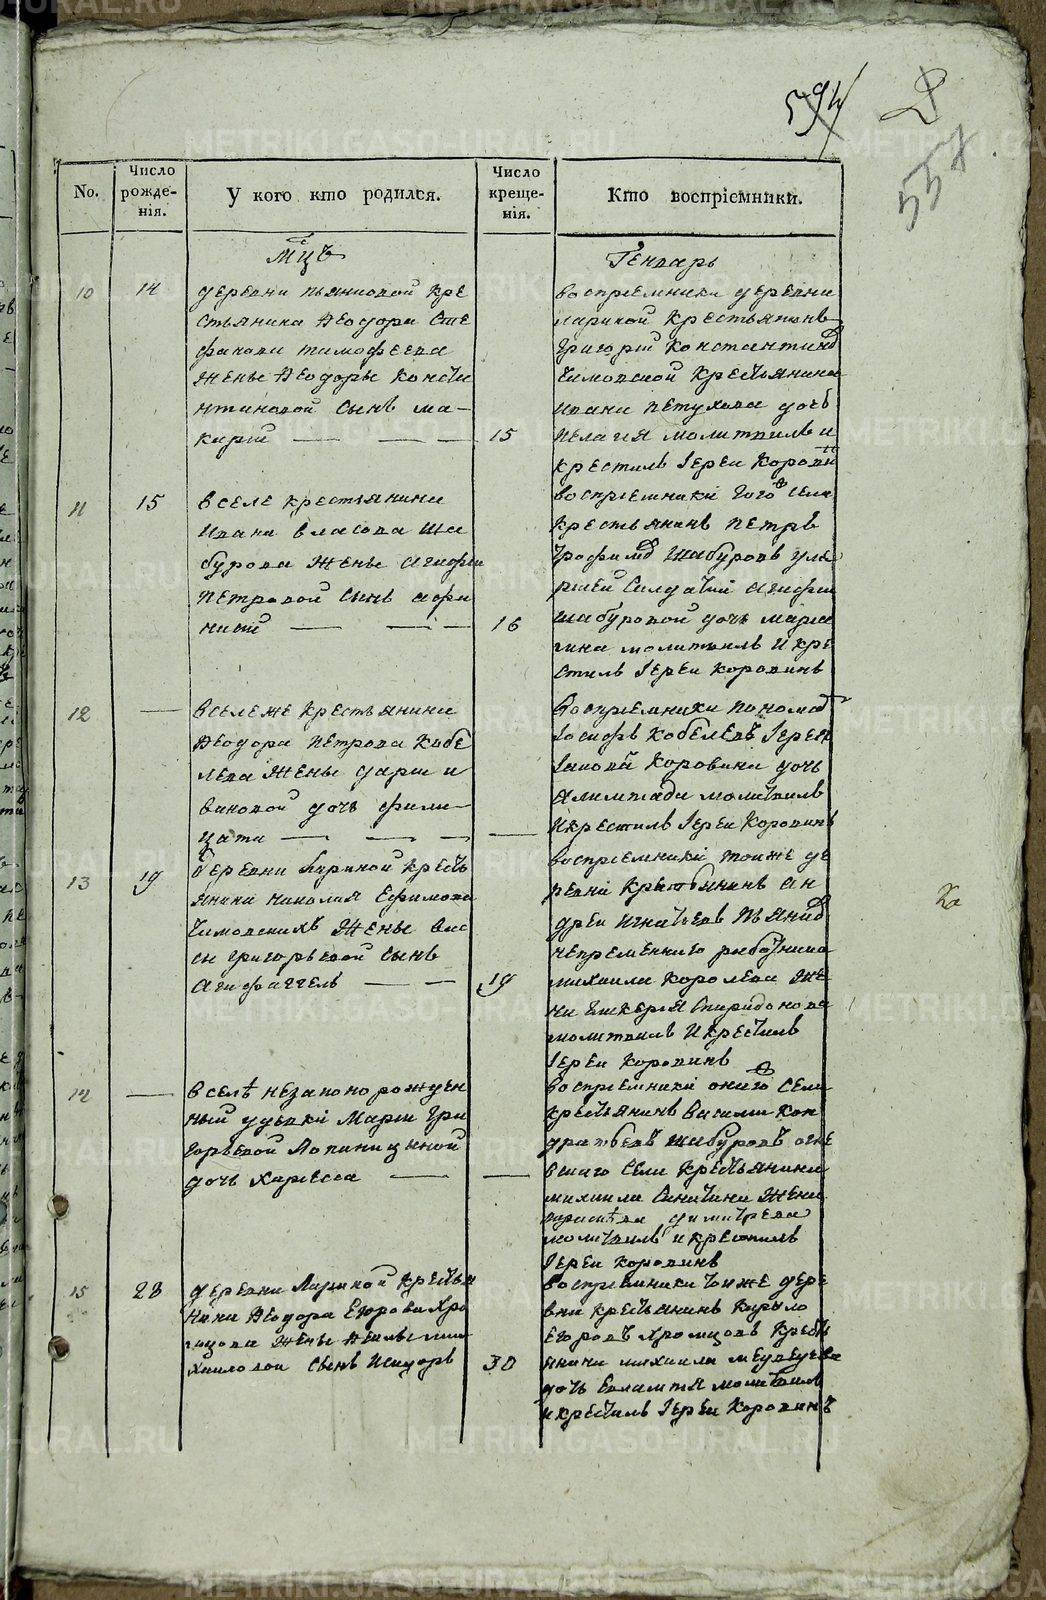 594
557
No.
Число рожде-нія.
У кого кто родился.
Число креще-нія.
Кто воспріемники.
Мцъ
Генварь
10
14
деревни пьянковой кре
стьянина Ѳеодора Сте
фанова тимофеева
жены Ѳеодоры Конста
нтиновой сынъ ма-
карій
15
воспріемники деревни
лариной крестьянинъ
Григорій Константинов
крестьянина
ивана петухова дочь
пелагия молитвилъ и
крестилъ Іереи Коровин
11
15
в селе крестьянина
ивана власова ша
бурова жены агафіи
петровой сынъ афа
насій
16
воспріемники того села
крестьянинъ петръ
трофимов шабуровъ
агафіи
шабуровой дочь мари
молитвилъ и кре
стилъ Іереи Коровинъ
12
в селе же крестьянина
Ѳеодора петрова кобе
лева жены дарьи и
вановой дочь фили
цата
воспріемники пономар
Іосифъ кобелевъ Іерея
Іакова Коровина дочь
Олимпиада молитвилъ
и крестилъ Іереи Коровинъ
13
19
деревни лариной кресть
янина николая Ефимова
жены вас
сы григорьевой сынъ
агафаггелъ
19
воспріемники тоиже де
ревни крестьянинъ ан
дреи игнатьевъ пьянков
непременнаго работника
михаила королева же
на гликерія спиридонова
молитвилъ и крестилъ
Іереи Коровинъ
14
в селѣ незаконорожден
ный у девки Маріи гри
горьевой Лопаницыной
дочь хариесса
воспріемники онаго села
крестьянинъ василіи кон
дратьевъ шабуровъ
села крестьянина
михаила жена
димитрева
молитвилъ и крестилъ
Іереи Коровинъ
15
28
деревни Лариной крестья
нина Ѳеодора Егорова хро
мцова жены ми
хаиловой сынъ исидоръ
30
воспріемники тоиже дере
вни крестьянинъ кирыло
егоровъ хромцовъ кресть
янина михаила медведева
дочь евлампія молитвилъ
и крестилъ Іереи Коровинъ
METRIKI.GASO-URAL.RU